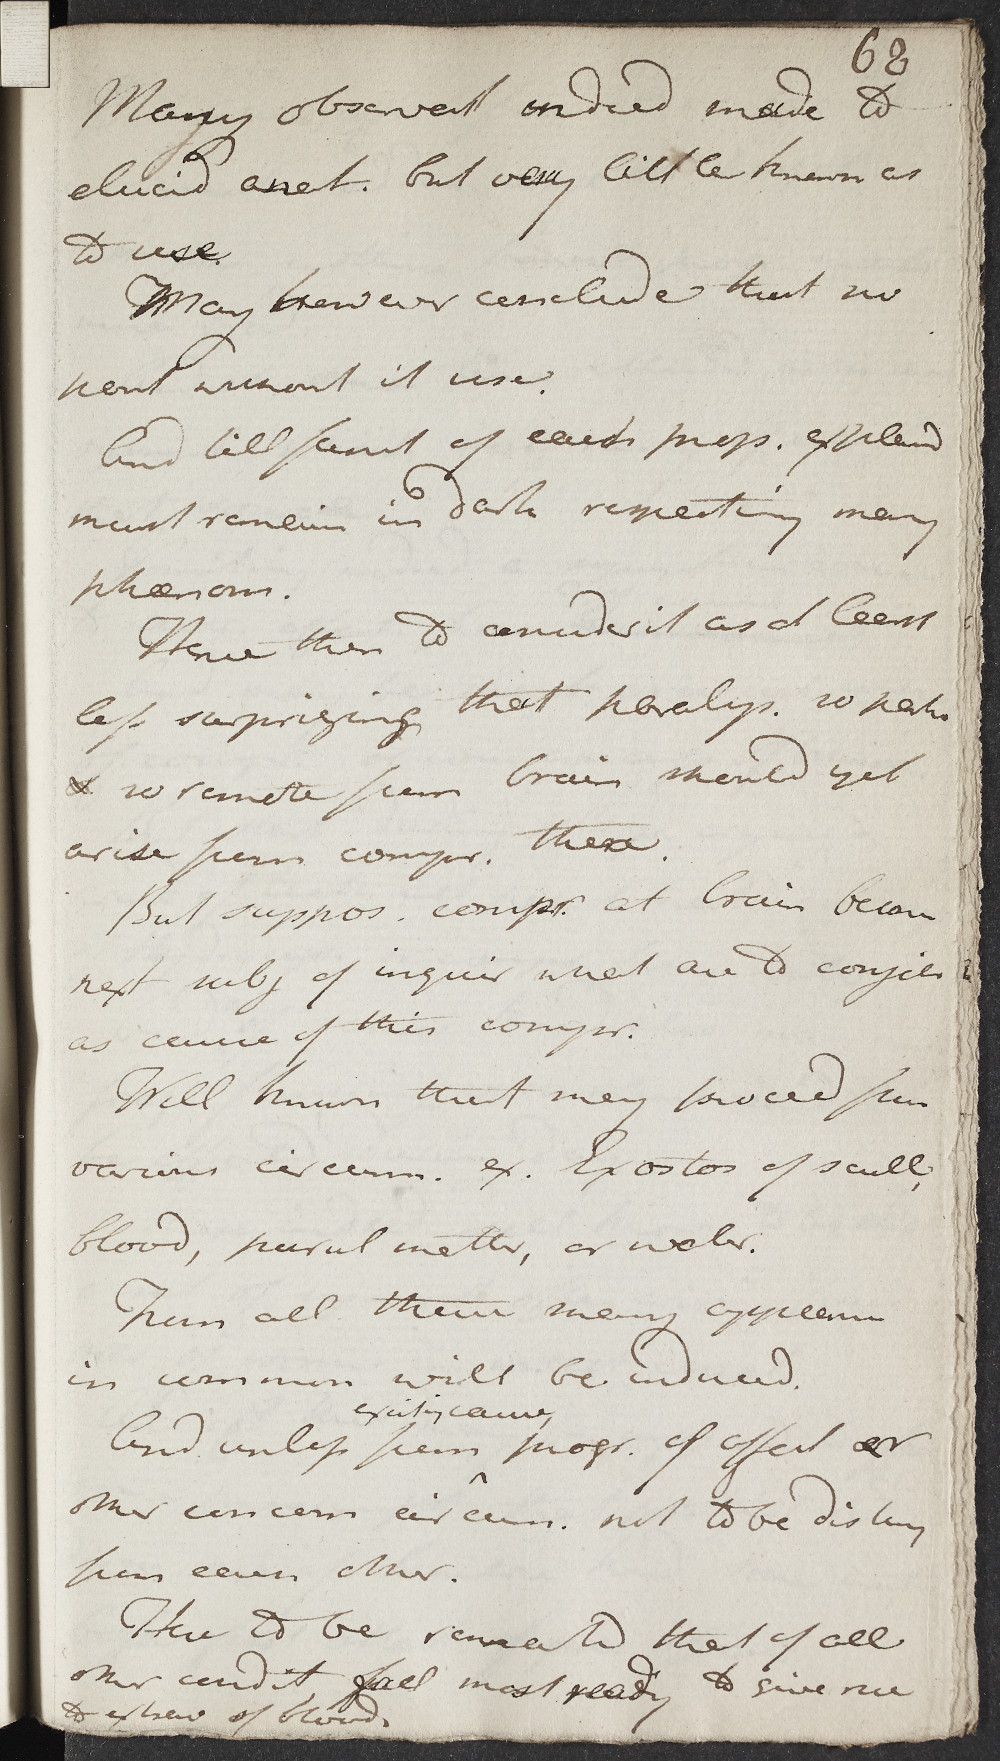 68
Many observatt indeed made to
elucid anat. but very little known as
to use.
May however conclude that no
part without it use.
And till funct of each prop. explaind
must remain in dark respecting many
phænom.
Hence then to considerit as at least
less surprizing that paralys. to parts
& so remote from brain should yet
arise from compr. there.
But suppos. compr. at brain becom
next subj of inquir what are to consider
as cause of this compr.
Well known that may proceed from
various circum. ex. Exostos of scull,
blood, purul matter, or water.
From all these many appearan
in common will be induced.
exciting cause,
And unless from progr. of affect or
other concom circum. not to be disting
from each other.
Here to be remarkd that of all
other condit most ready to give rise
to extrav of blood.